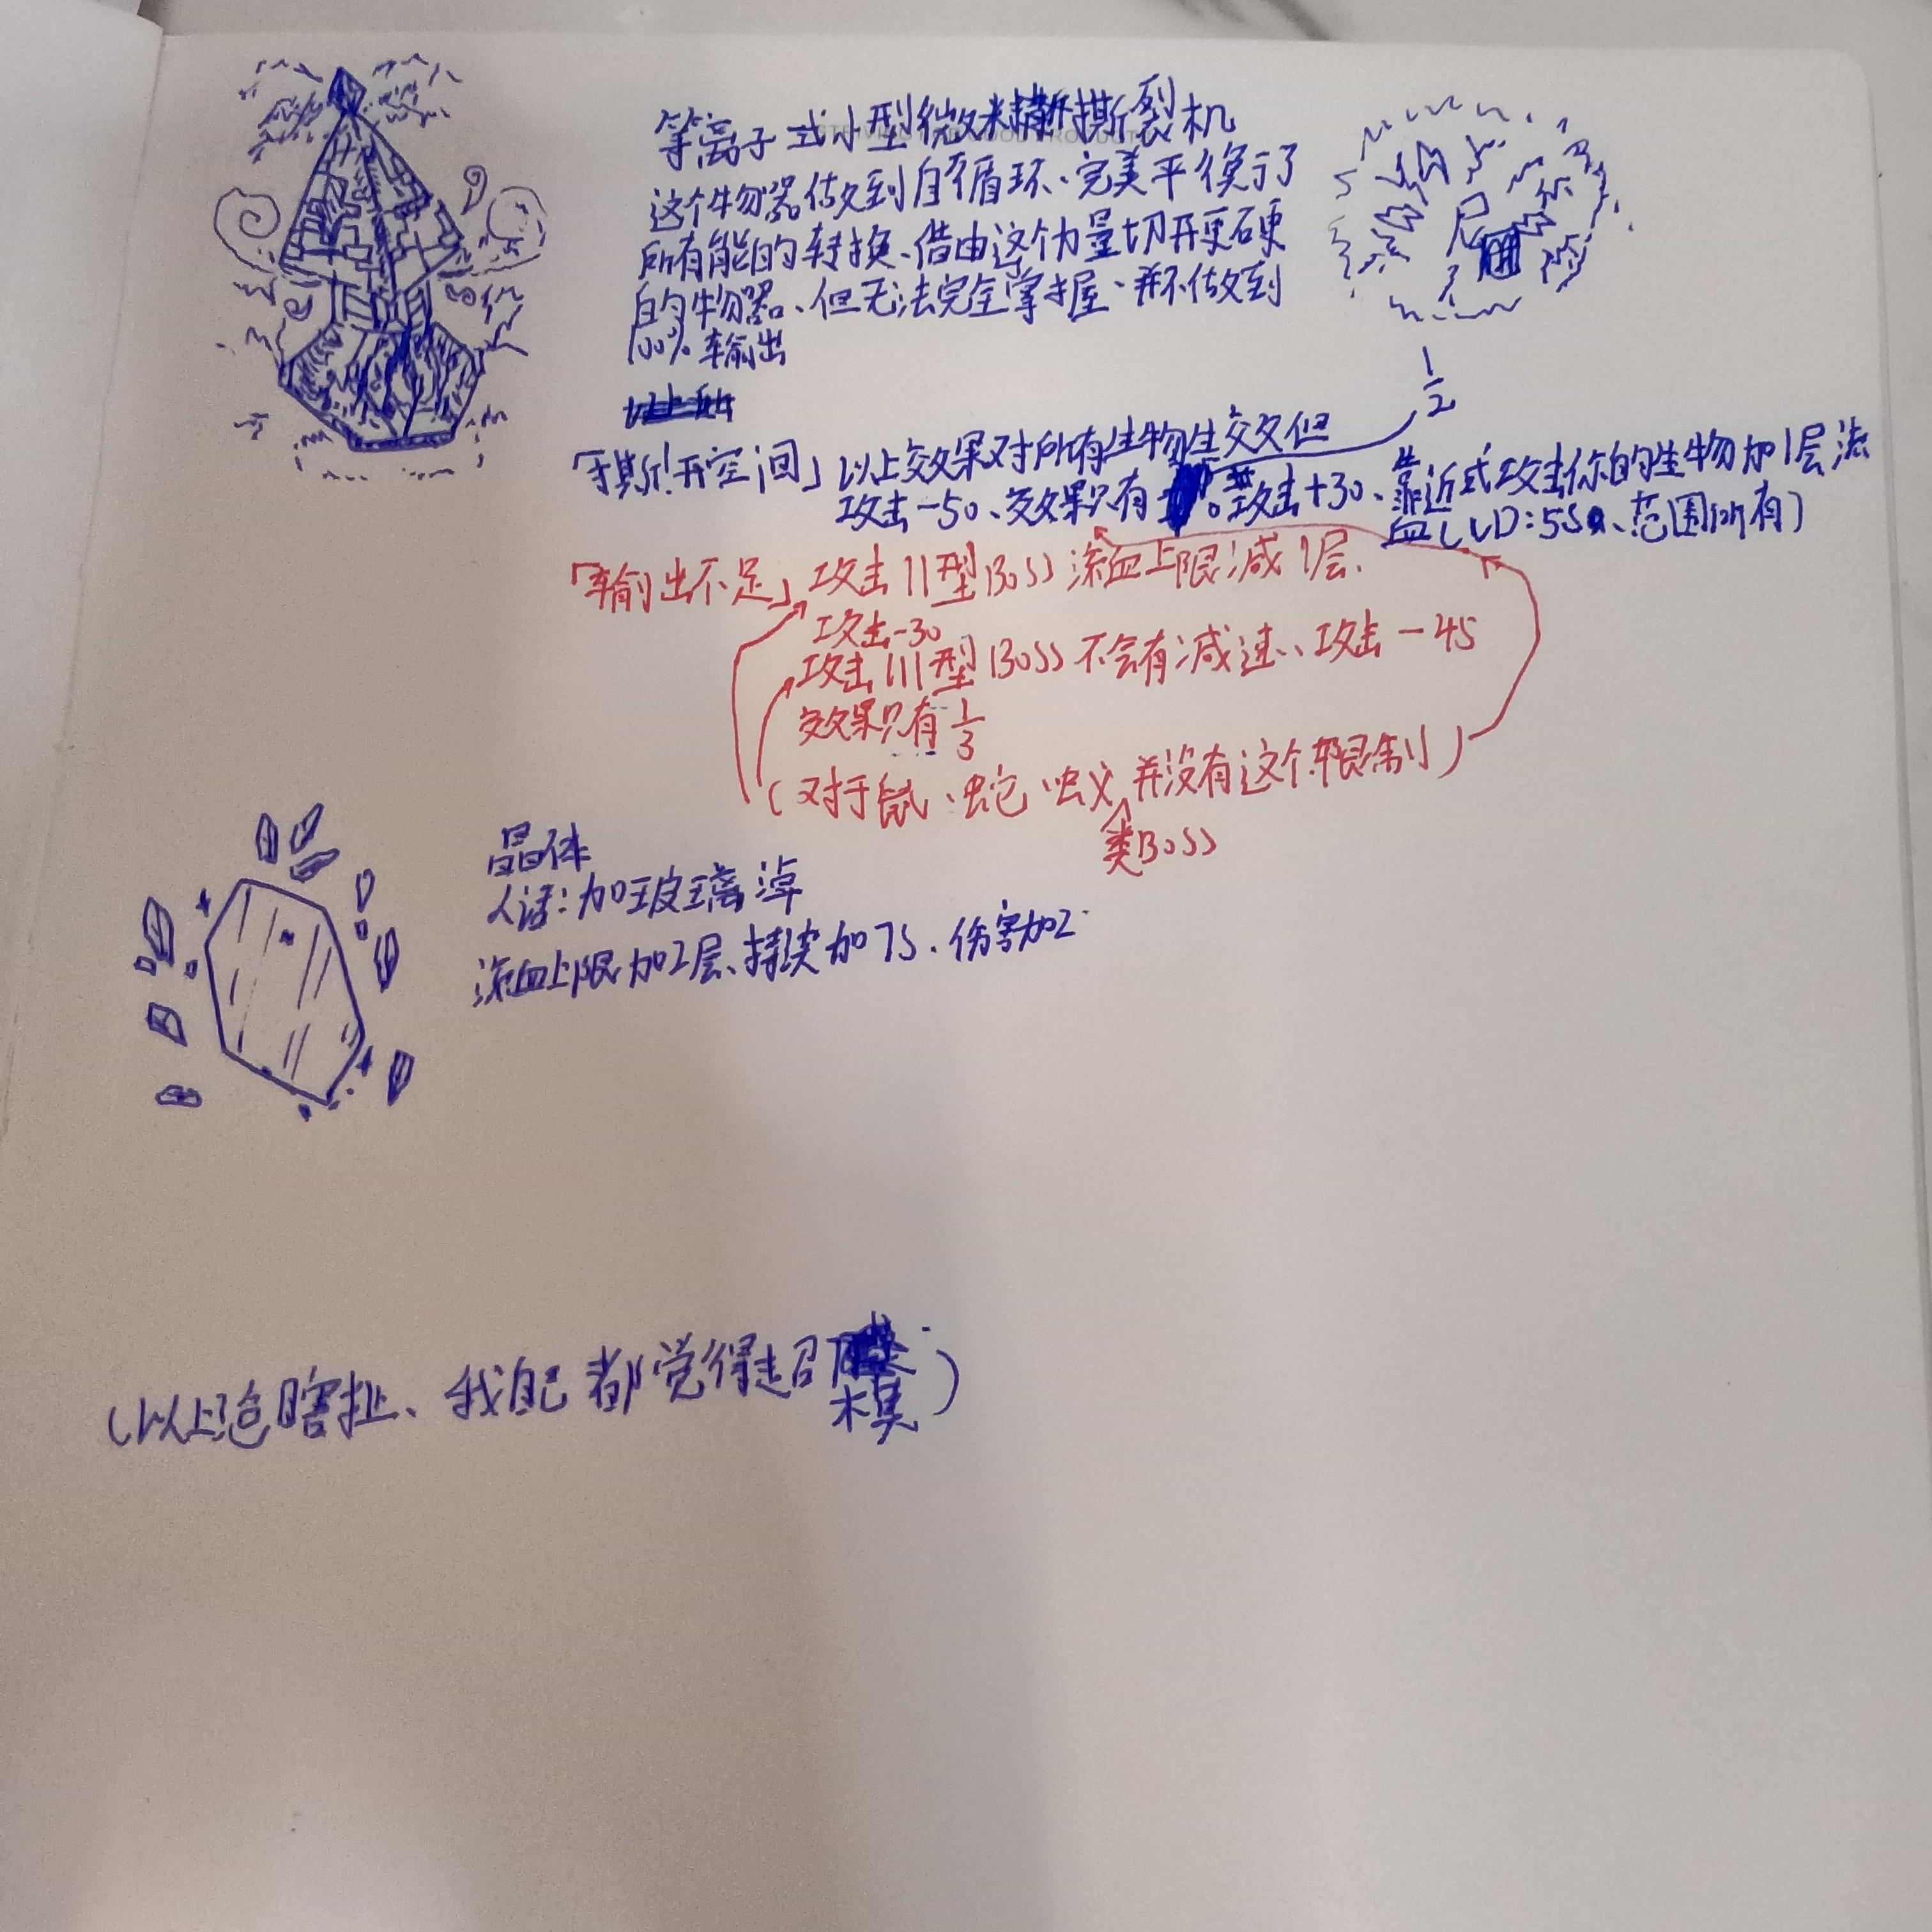 等离子式小型微米撕裂机
这个物器做到自循环、完美平衡了
所有能的转换、借由这个力量切开更硬
的物器、但无法完全掌握、并不做到
100%输出
「撕开空间」以上效果对所有生物生效但
1/2
攻击-50、效果只有 。攻击+30、靠近式攻击你的生物加1层流
血(CD:5s、范围所有)
「输出不足」攻击II型Boss流血上限减1层、
攻击-30
攻击III型Boss不会有减速、攻击-45
效果只有1/3
(对于鼠、蛇、蚁并没有这个限制)
类Boss
晶体
人话:加玻璃渣
流血上限加2层、持续加7s、伤害加2
(以上瞎扯、我自己都觉得超模)